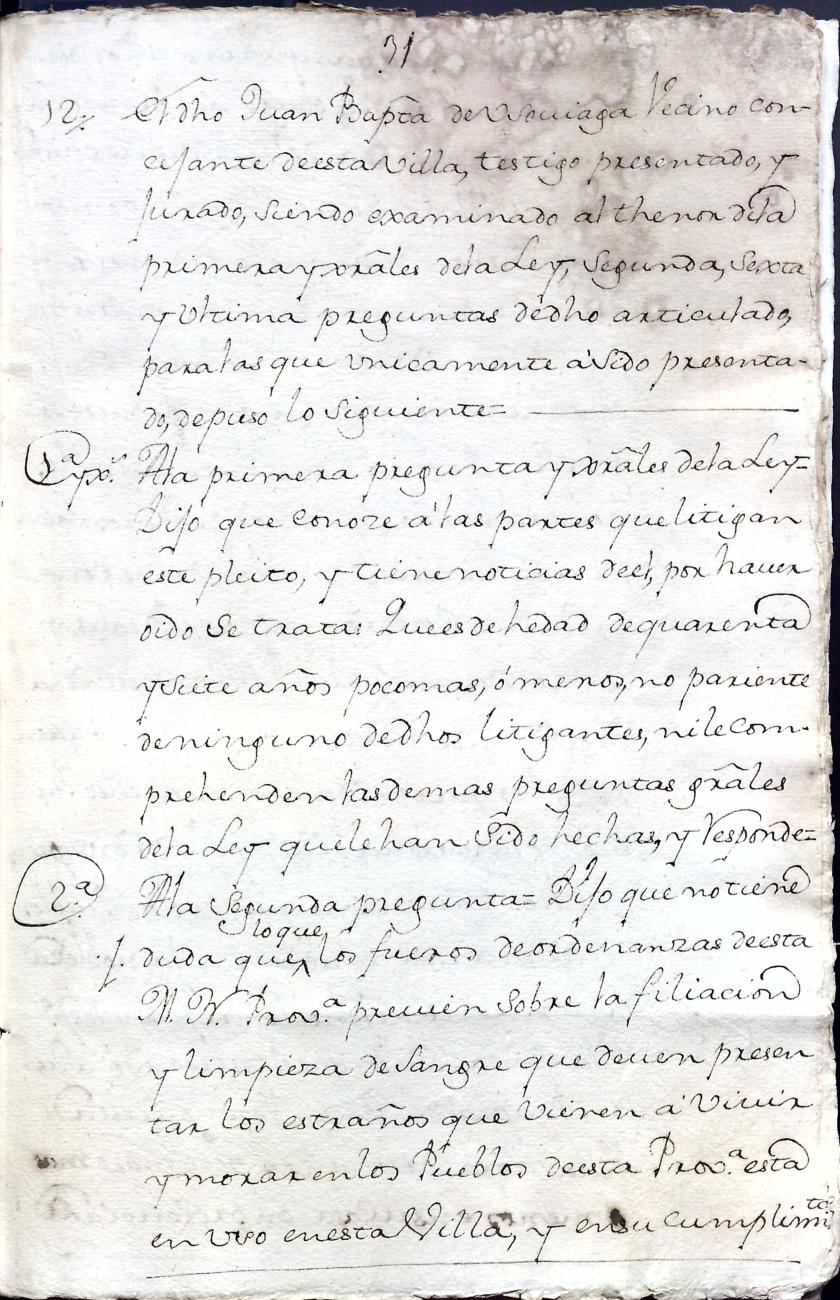 31
12. El dho Juan Bapta de Usouiaga Vecino con-
cejante deesta Villa, testigo presentado, y
Jurado, siendo examinado al thenor dela
primera y grales dela Ley, Segunda, Sexta
y Vltima preguntas dedho articulado,
para las que vnicamente á Sido presenta-
do, depuso lo Siguiente=
1ª y gs. Ala primera pregunta y grales dela Ley=
Dijo que conoze á las partes que litigan
este pleito, y tiene noticias deel, por hauer
oido Se trata: Que es de hedad de quarenta
y Siete años poco mas, ó menos, no pariente
de ninguno de dhos litigantes, ni le com-
prehenden las demas preguntas grales
dela Ley que le han Sido hechas, y Responde=
2.ª Ala Segunda pregunta= Dijo que no tiene
lo que
duda que los fueros de ordenanzas deesta
M. N. Prov.ª preuien Sobre la filiacion
y limpieza de Sangre que deuen presen
tar los estraños que vienen á Viuir
y morar en los Pueblos deesta Prov.ª esta
en vso en esta Villa, y en su cumplimto